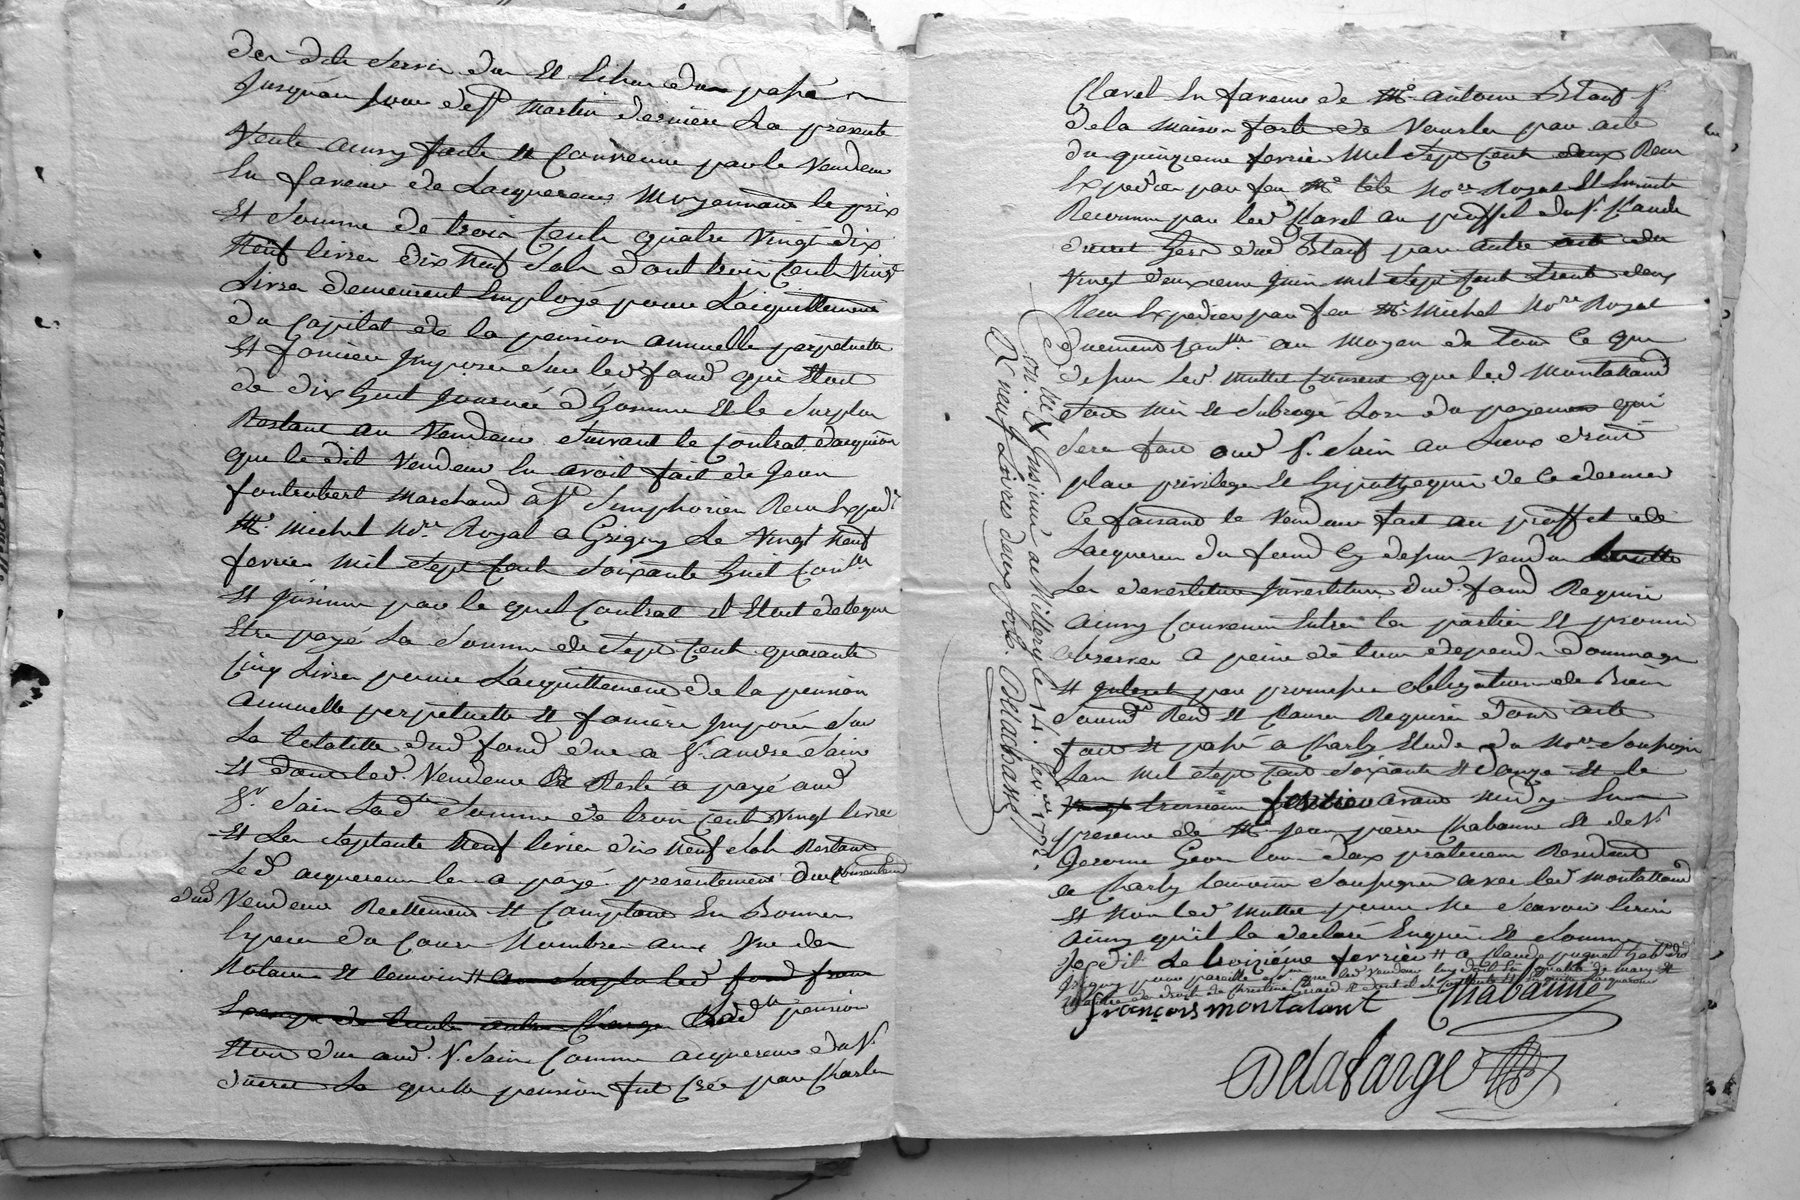 jusqu'au jour de St martin derniere La presente
Vente ainsy faite et Convenue par le Vendeur
En faveur de Lacquereur moyennant le prix
Et Somme de trois Cents quatre Vingt dix
Neuf livres dix Neuf Sols dont trois Cent Vingt
Livres demeurent Employé pour L'acquittement
du Capital de la pension annuelle perpetuelle
Et fonciere Imposée Sur led fond qui Etoit
de dix huit journée d'homme Et le Surplus
Restant au Vendeur Suivant le Contrat dacquisition
que le dit Vendeur En avoit fait de Jean
fontrobert marchand a St Simphorien Reçu Expedié
Me michel Nore Royal a Grigny Le Vingt Neuf
fevrier mil Sept Cent Soixante huit Conllé
Et Insinué par le quel Contrat il Etoit delegué
Etre payé La Somme de Sept Cent quarante
Cinq Livres pour L'acquittement de la pension
annuelle perpetuelle Et fonciere Imposée Sur
La totalitte dud fond due a Sr andré Sain
Et dont led Vendeur Reste a payé aud
Sr Sain Lade Somme de trois Cent Vingt livre
Et Les Septante Neuf livres dix Neuf Sols Restant
Led acquereur les a payé presentement
dud Vendeur Reellement Et Comptant En Bonnes
Especes du Cours Nombrées aux Vue des
Notaire Et temoins Et au Surplus led fond franc
Exempt de toute autre Charge lade pension
Etoit due aud Sr Sain Comme acquereur du Sr
ducret La quelle pension fut Crée par Charles
Clavel En faveur de Me antoine Blauf Sr
de la maison forte de Vourles par acte
du quinzieme fevrier mil Sept Cent deux Reçu
Expedié par feu Me Nore Royal Et Ensuite
Reconnu par led Clavel au proffit du Sr Claude
ducret heri dud Blauf par autre acte du
Vingt deuxieme Juin mil Sept Cent trente deux
Reçu Expedié par feu Me Michel Nore Royal
duement Conllé au moyen de tout Ce que
dessus led muttet Consent que led montalland
Soit mis et Subrogé Lors du payement qui
Sera fait aud Sr Sain au Lieux droits
place privileges Et hipotheques de Ce dernier
Ce faisant le Vendeur fait au proffit de
Lacquereur du fond Cy dessus Vendu
Les devestiture Investiture dud fond Requise
ainsy Convenu Entre les parties Et promis
observer a peine de tous depends dommages
Et Interet par promesse obligation de Biens
Soumis Renon Et Clauses Requises dont acte
fait et passé a Charly Etude du Nore Soussigné
Lan mil Sept Cent Soixante Et douze Et le
troisieme fevrier avant midy En
presence de Me Jean pierre Chabanne Et de Sr
Jerome praticiens Residant
a Charly temoins Soussignés avec led montalland
Et Non led muttet pour Ne Scavoir Ecrire
ainsy qu'il la declaré Enquis Et Sommé
Jerdit Le troizieme fevrier
françois montalant Chabanne
Delafarge
Conllé Et Insinué a Millery le 14 fevrier 1772.
R neuf Livres douze Sols. Delabbasse